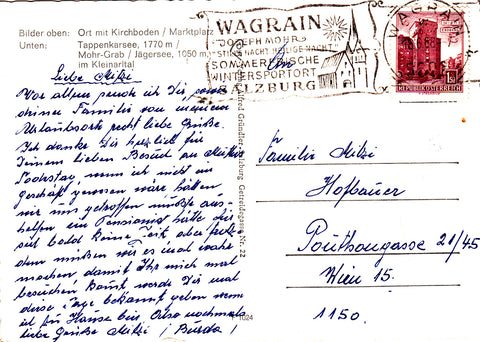 Bilder oben: Ort mit Kirchboden / Marktplatz
Unten: Tappenkarsee, 1770 m /
Mohr-Grab / Jägersee, 1050 m,
im Kleinarltal
WAGRAIN
JOSEPH MOHR
"STILLE NACHT HEILIGE NACHT"
SOMMERFRISCHE
WINTERSPORTORT
SALZBURG
WAGRAIN
REPUBLIK ÖSTERREICH
Liebe Mitzi
Vor allem sende ich Dir sowie
deiner Familie von meinem
Urlaubsort recht liebe Grüße.
Ich danke Dir herzlich für
Deinen lieben Besuch an Muttis
Todestag wenn ich nicht im
Geschäft gewesen wäre hätten
wir uns getroffen mußte aus-
helfen ein Pensionist hätte die
seit bald keine Zeit aber trotz-
dem müßen wir es mal wahr
machen damit Ihr mich mal
besuchen kommt werde Dir mal
diese Tage bekannt geben wenn
ich zu Hause bin Also nochmals
liebe Grüße Mitzi
An
Familie Mitzi
Hofbauer
Pouthongasse 21/45
Wien 15.
1150
Alfred Gründler, Salzburg, Getreidegasse Nr. 22
1024